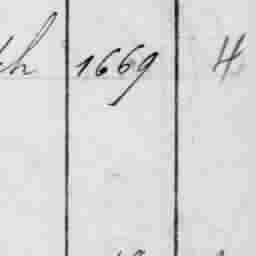 th 1669 4